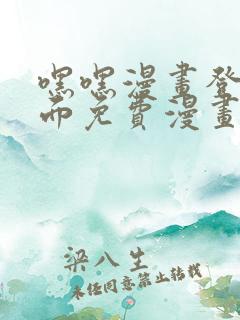 嘿嘿漫畫登
面免費漫畫
梁八生
未经同意禁止转载